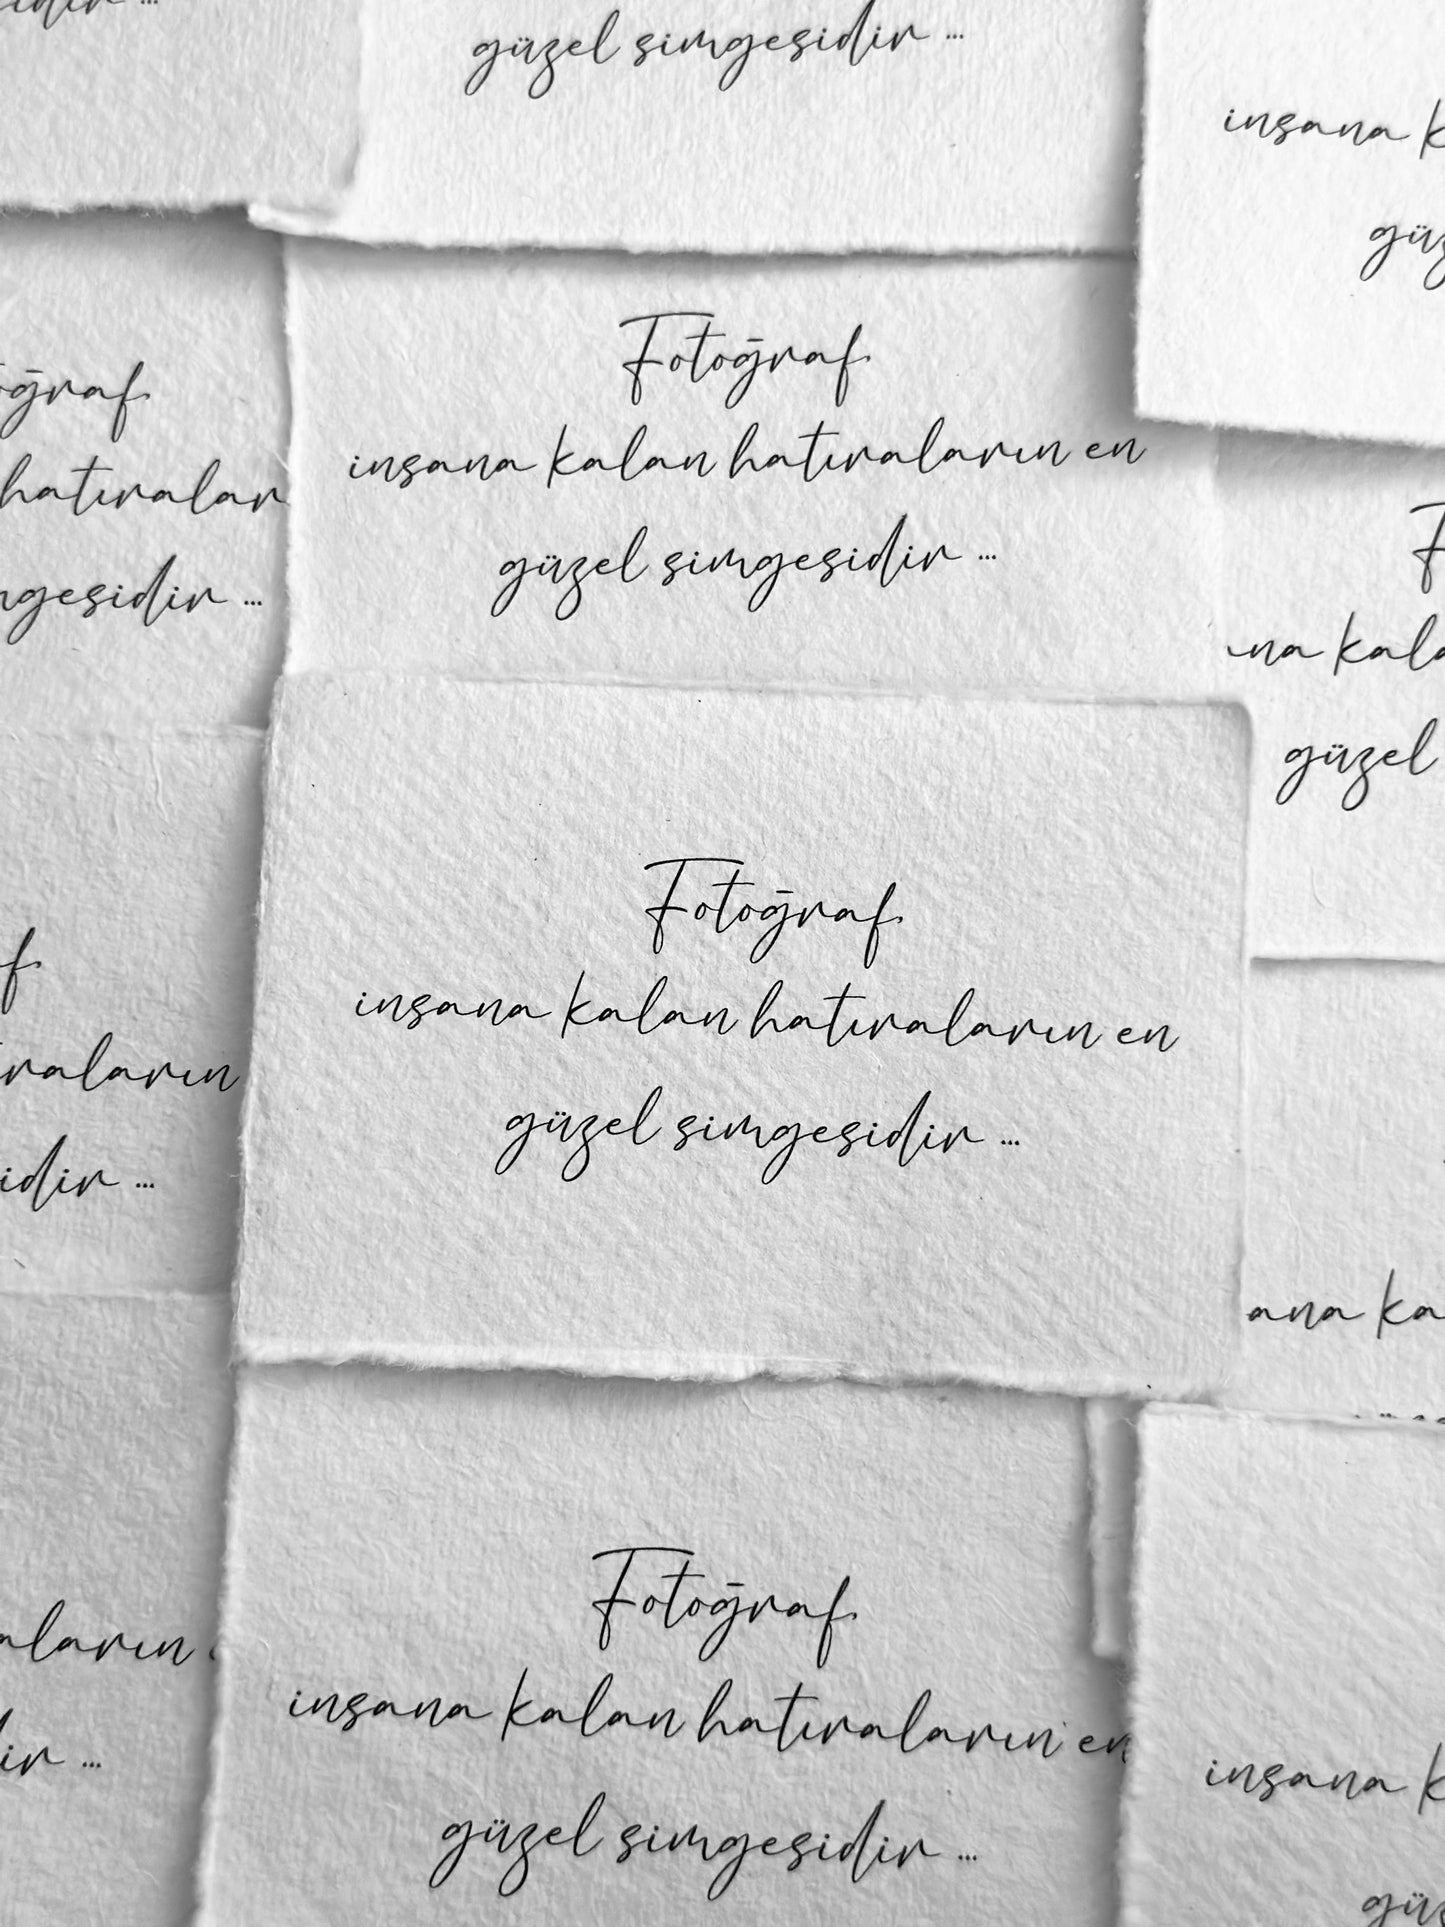 sidir ...
güzel simgesidir ...
insana k
güz
Fotoğraf
insana kalan hatıraların en
güzel simgesidir ...
oğraf
hatıralar
mgesidir ...
F
na kala
güzel
Fotoğraf
insana kalan hatıraların en
güzel simgesidir ...
f
raların
sidir ...
ana ka
Fotoğraf
insana kalan hatıraların en
güzel simgesidir ...
aların
dir ...
insana k
güz